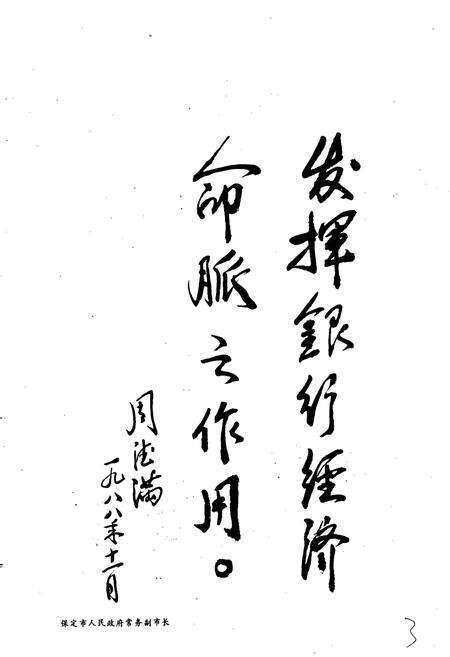 发揮銀行經济
命脈之作用。
周德满
一九八八年十一月
保定市人民政府常务副市长
3